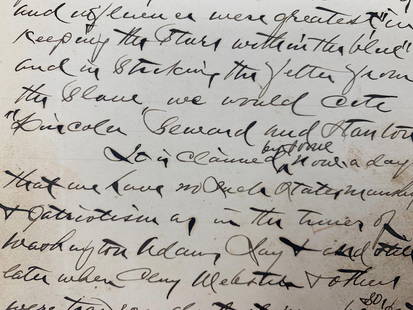 and influence were greatest "in
keeping the Stars within the blue"
and in Striking the fetter from
the Slave, we would Cite
"Lincoln Seward and Stanton
by some
It is claimed now a day
that we have no such Statesmanship
& patriotism as in the times of
Washington Adams Jay & and
later when Clay Webster & others
so
were